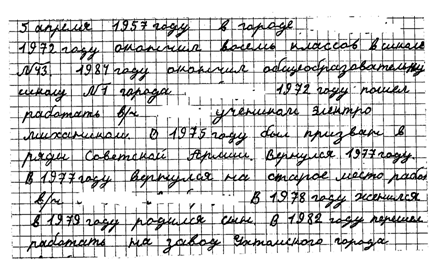 5 апреля 1957 году в городе
1972 году окончил восемь классов в школе
№43 1987 году окончил общеобразовательную
школу №7 города 1972 году пошел
работать в/ч учеником электро
механиком. В 1975 году был призван в
ряды Советской Армии. Вернулся 1977 году.
В 1977 году вернулся на старое место работ
в/ч В 1978 году женился
в 1979 году родился сын. В 1982 году перешел
работать на завод города